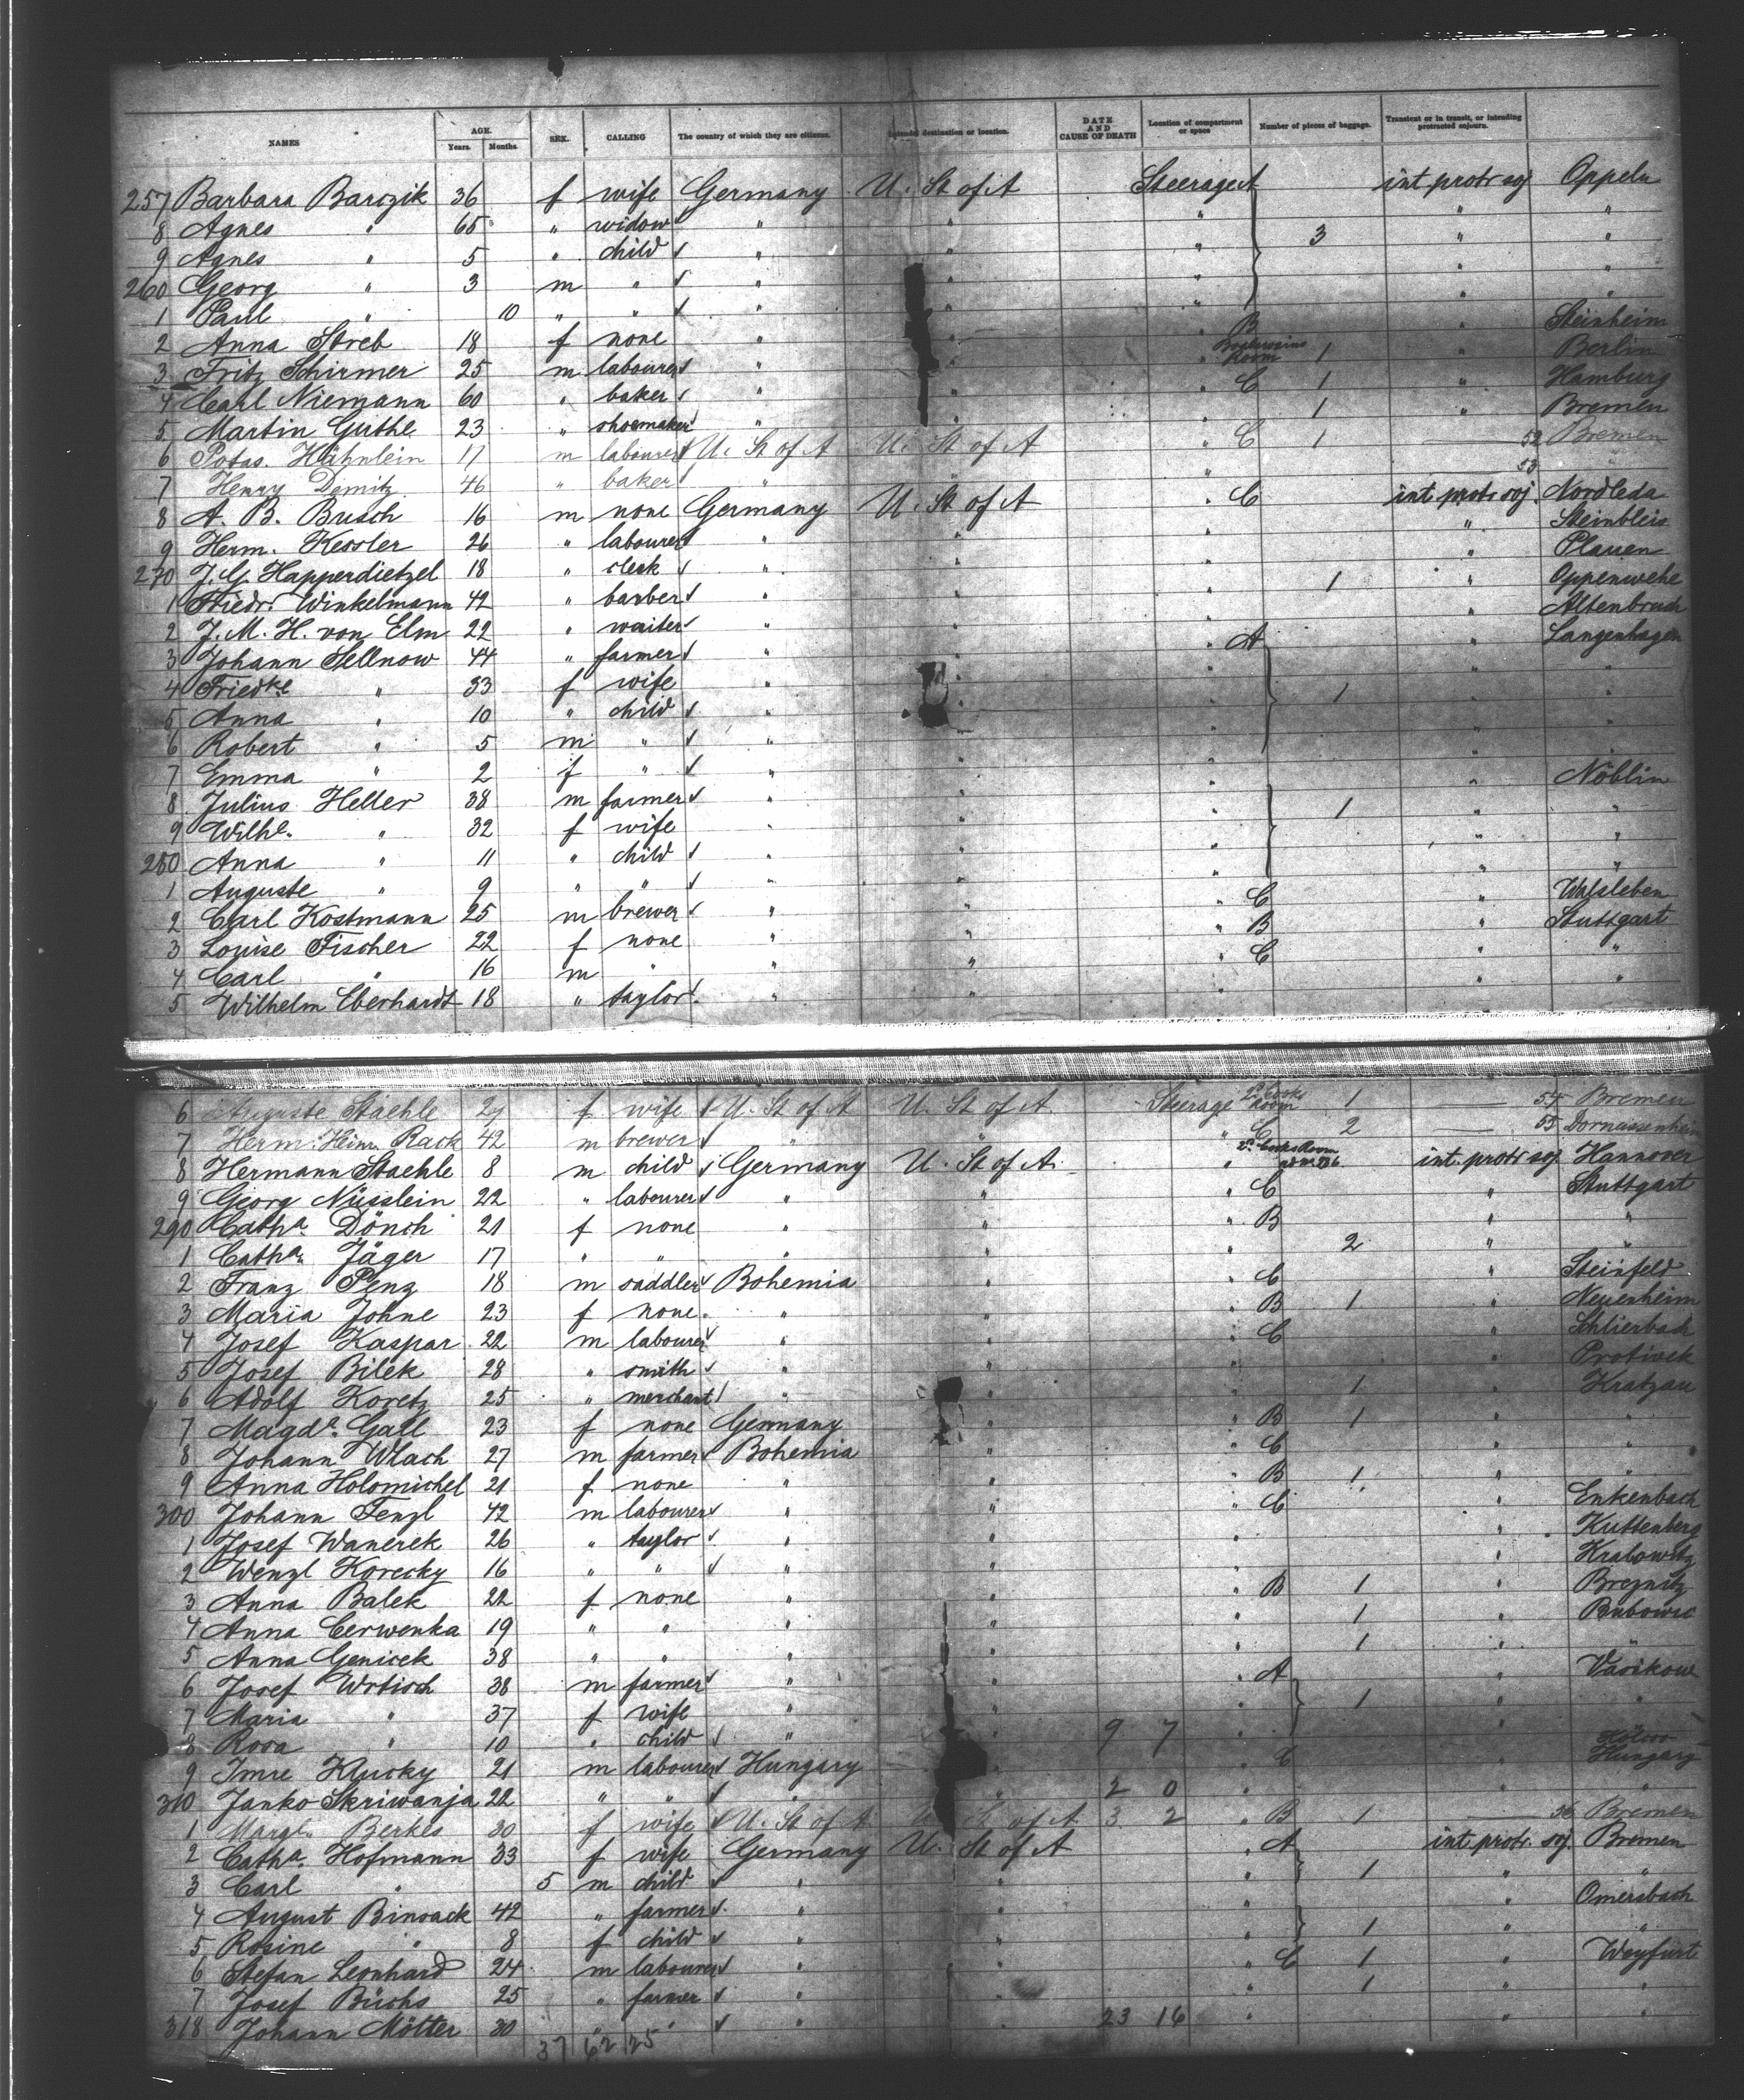 NAMES AGE. Years. Months. SEX. CALLING The country of which they are citizens. Intended destination or location. DATE AND CAUSE OF DEATH Location of compartment or space Number of pieces of baggage. Transient or in transit, or intending protracted sojourn.
257 Barbara Barczik 36 f wife Germany U. St of A Steerage A int protr soj Oppeln
8 Agnes " 65 " widow " " " " "
9 Agnes " 5 " child " " " 3 " "
260 Georg " 3 m " " " " " "
1 Paul " 10 " " " " " " "
2 Anna Streb 18 f none " " " B " Steinheim
3 Fritz Schirmer 25 m labourer " " " Room 1 " Berlin
4 Carl Niemann 60 " baker " " " C 1 " Hamburg
5 Martin Guthe 23 " shoemaker " " " 1 " Bremen
6 Potas. Hähnlein 17 m labourer U. St of A U. St of A " C 1 52 Bremen
7 Henry Demitz 46 " baker " " " 53 "
8 A. B. Busch 16 m none Germany U. St of A " C int protr soj. Nordleda
9 Herm. Kessler 26 " labourer " " " " Steinbleis
270 J. G. Happerdietzel 18 " clerk " " " " Plauen
1 Friedr. Winkelmann 42 " barber " " " 1 " Oppenwehe
2 J. M. H. von Elm 22 " waiter " " " " Altenbruch
3 Johann Sellnow 44 " farmer " " " A " Langenhagen
4 Friedke " 33 f wife " " " 1 " "
5 Anna " 10 " child " " " " "
6 Robert " 5 m " " " " " "
7 Emma " 2 f " " " " " "
8 Julius Heller 38 m farmer " " " 1 " Nöblin
9 Wilhe. " 32 f wife " " " " "
280 Anna " 11 " child " " " " "
1 Auguste " 9 " " " " " " "
2 Carl Kostmann 25 m brewer " " " C " Walsleben
3 Louise Fischer 22 f none " " " B " Stuttgart
4 Carl " 16 m " " " " C " "
5 Wilhelm Eberhardt 18 " taylor " " " " "
6 Auguste Staehle 29 f wife U. St of A U. St of A. Steerage 2d Cooks Room 1 54 Bremen
7 Herm. Heinr. Rack 42 m brewer " " " C 2 55 Dornassenheim
8 Hermann Staehle 8 m child Germany U. St of A. " 2d Cooks Room int. protr soj. Hannover
9 Georg Nüsslein 22 " labourer " " " C " Stuttgart
290 Catha. Dönch 21 f none " " " B " "
1 Catha. Jäger 17 " " " " " 2 " "
2 Franz Penz 18 m saddler Bohemia " " C " Steinfeld
3 Maria Johne 23 f none. " " " B 1 " Neuenheim
4 Josef Kaspar 22 m labourer " " " C " Schlierbach
5 Josef Bilek 28 " smith " " " " Protivek
6 Adolf Koretz 25 " merchant " " " 1 " Kratzau
7 Magda. Gall 23 f none Germany " " B 1 " "
8 Johann Wlach 27 m farmer Bohemia " " C " "
9 Anna Holomichel 21 f none " " " B 1 " "
300 Johann Fenzl 42 m labourer " " " C " Enkenbach
1 Josef Wanerek 26 " taylor " " " " Kuttenberg
2 Wenzl Korecky 16 " " " " " " Kralowitz
3 Anna Balek 22 f none " " " B 1 " Breznitz
4 Anna Cerwenka 19 " " " " " 1 " Bubowic
5 Anna Genicek 38 " " " " " 1 " "
6 Josef Wrtisch 38 m farmer " " " A " Vasikow
7 Maria " 37 f wife " " " 1 " "
8 Rosa " 10 " child " " 9 7 " "
9 Imre Klucky 21 m labourer Hungary " " C " Hungary
310 Janko Skriwanja 22 " " " " 2 0 " " "
1 Margt. Berkes 30 f wife U. St of A. U. St of A. 3 2 " B 1 36 Bremen
2 Catha. Hofmann 33 f wife Germany U. St of A " A int. protr. soj. Bremen
3 Carl " 5 m child " " " 1 " "
4 August Binsack 42 " farmer " " " " Omersbach
5 Rosine " 8 f child " " " 1 " "
6 Stefan Leonhard 24 m labourer " " " C 1 " Weyfürt
7 Josef Büchs 25 " farmer " " " 1 " "
318 Johann Mötter 30 " " " " 23 16 " " "
37 62 25